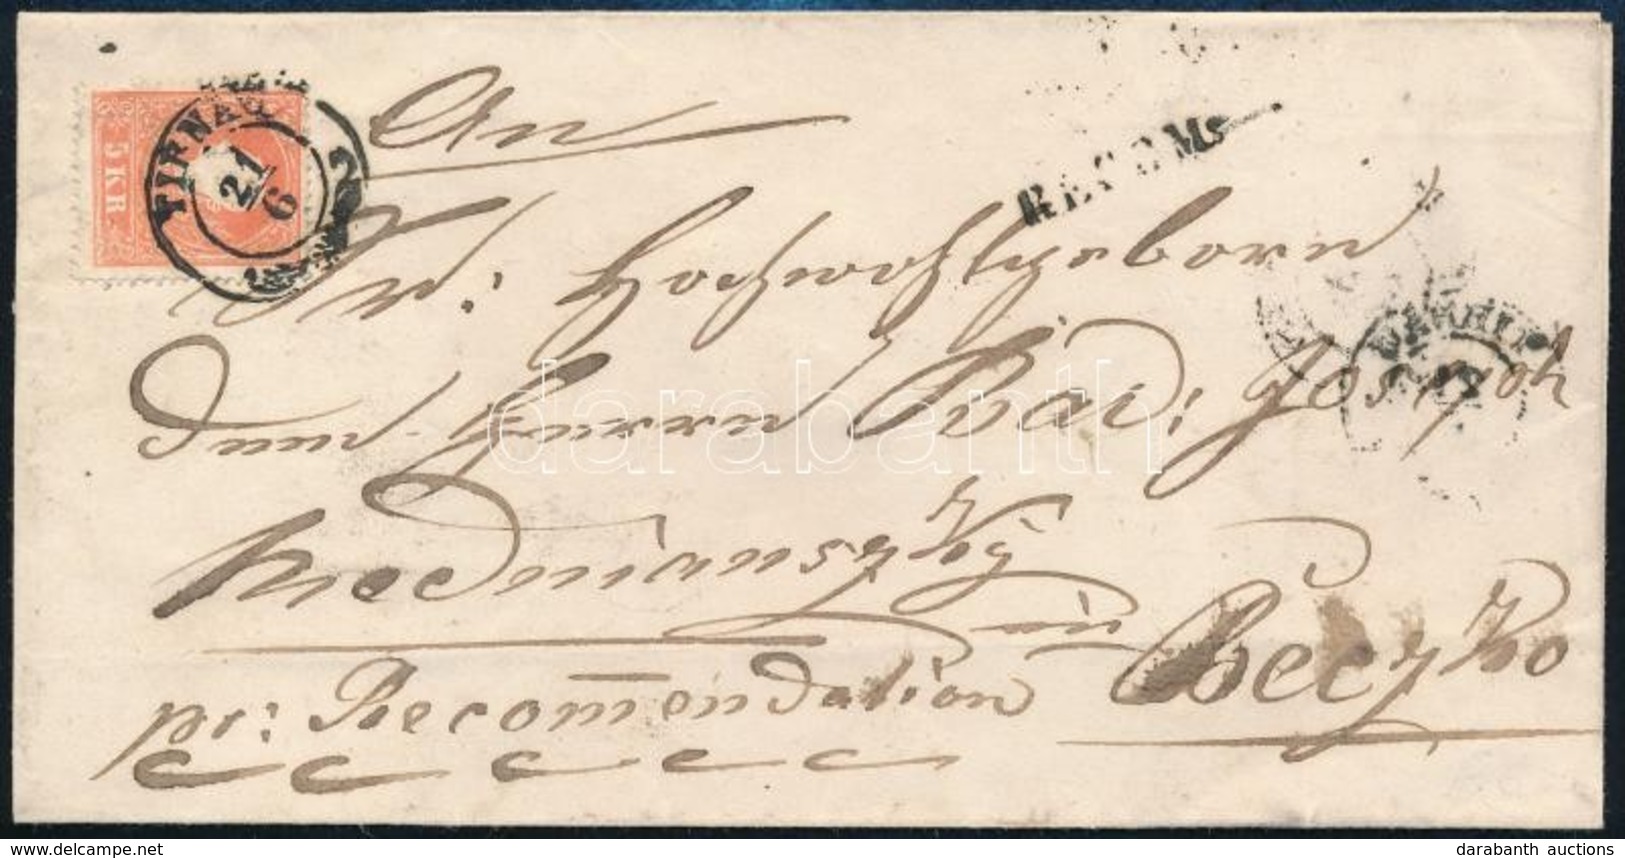 TIRNAU
21/6
5 KR
RECOMs
An
Sr: Hochwohlgeborn
dem Herrn Bar: Joseph
Medniánszky
in
Beczko
pr: Recom̄endation
darabanth
delcampe.net
darabanth auctions